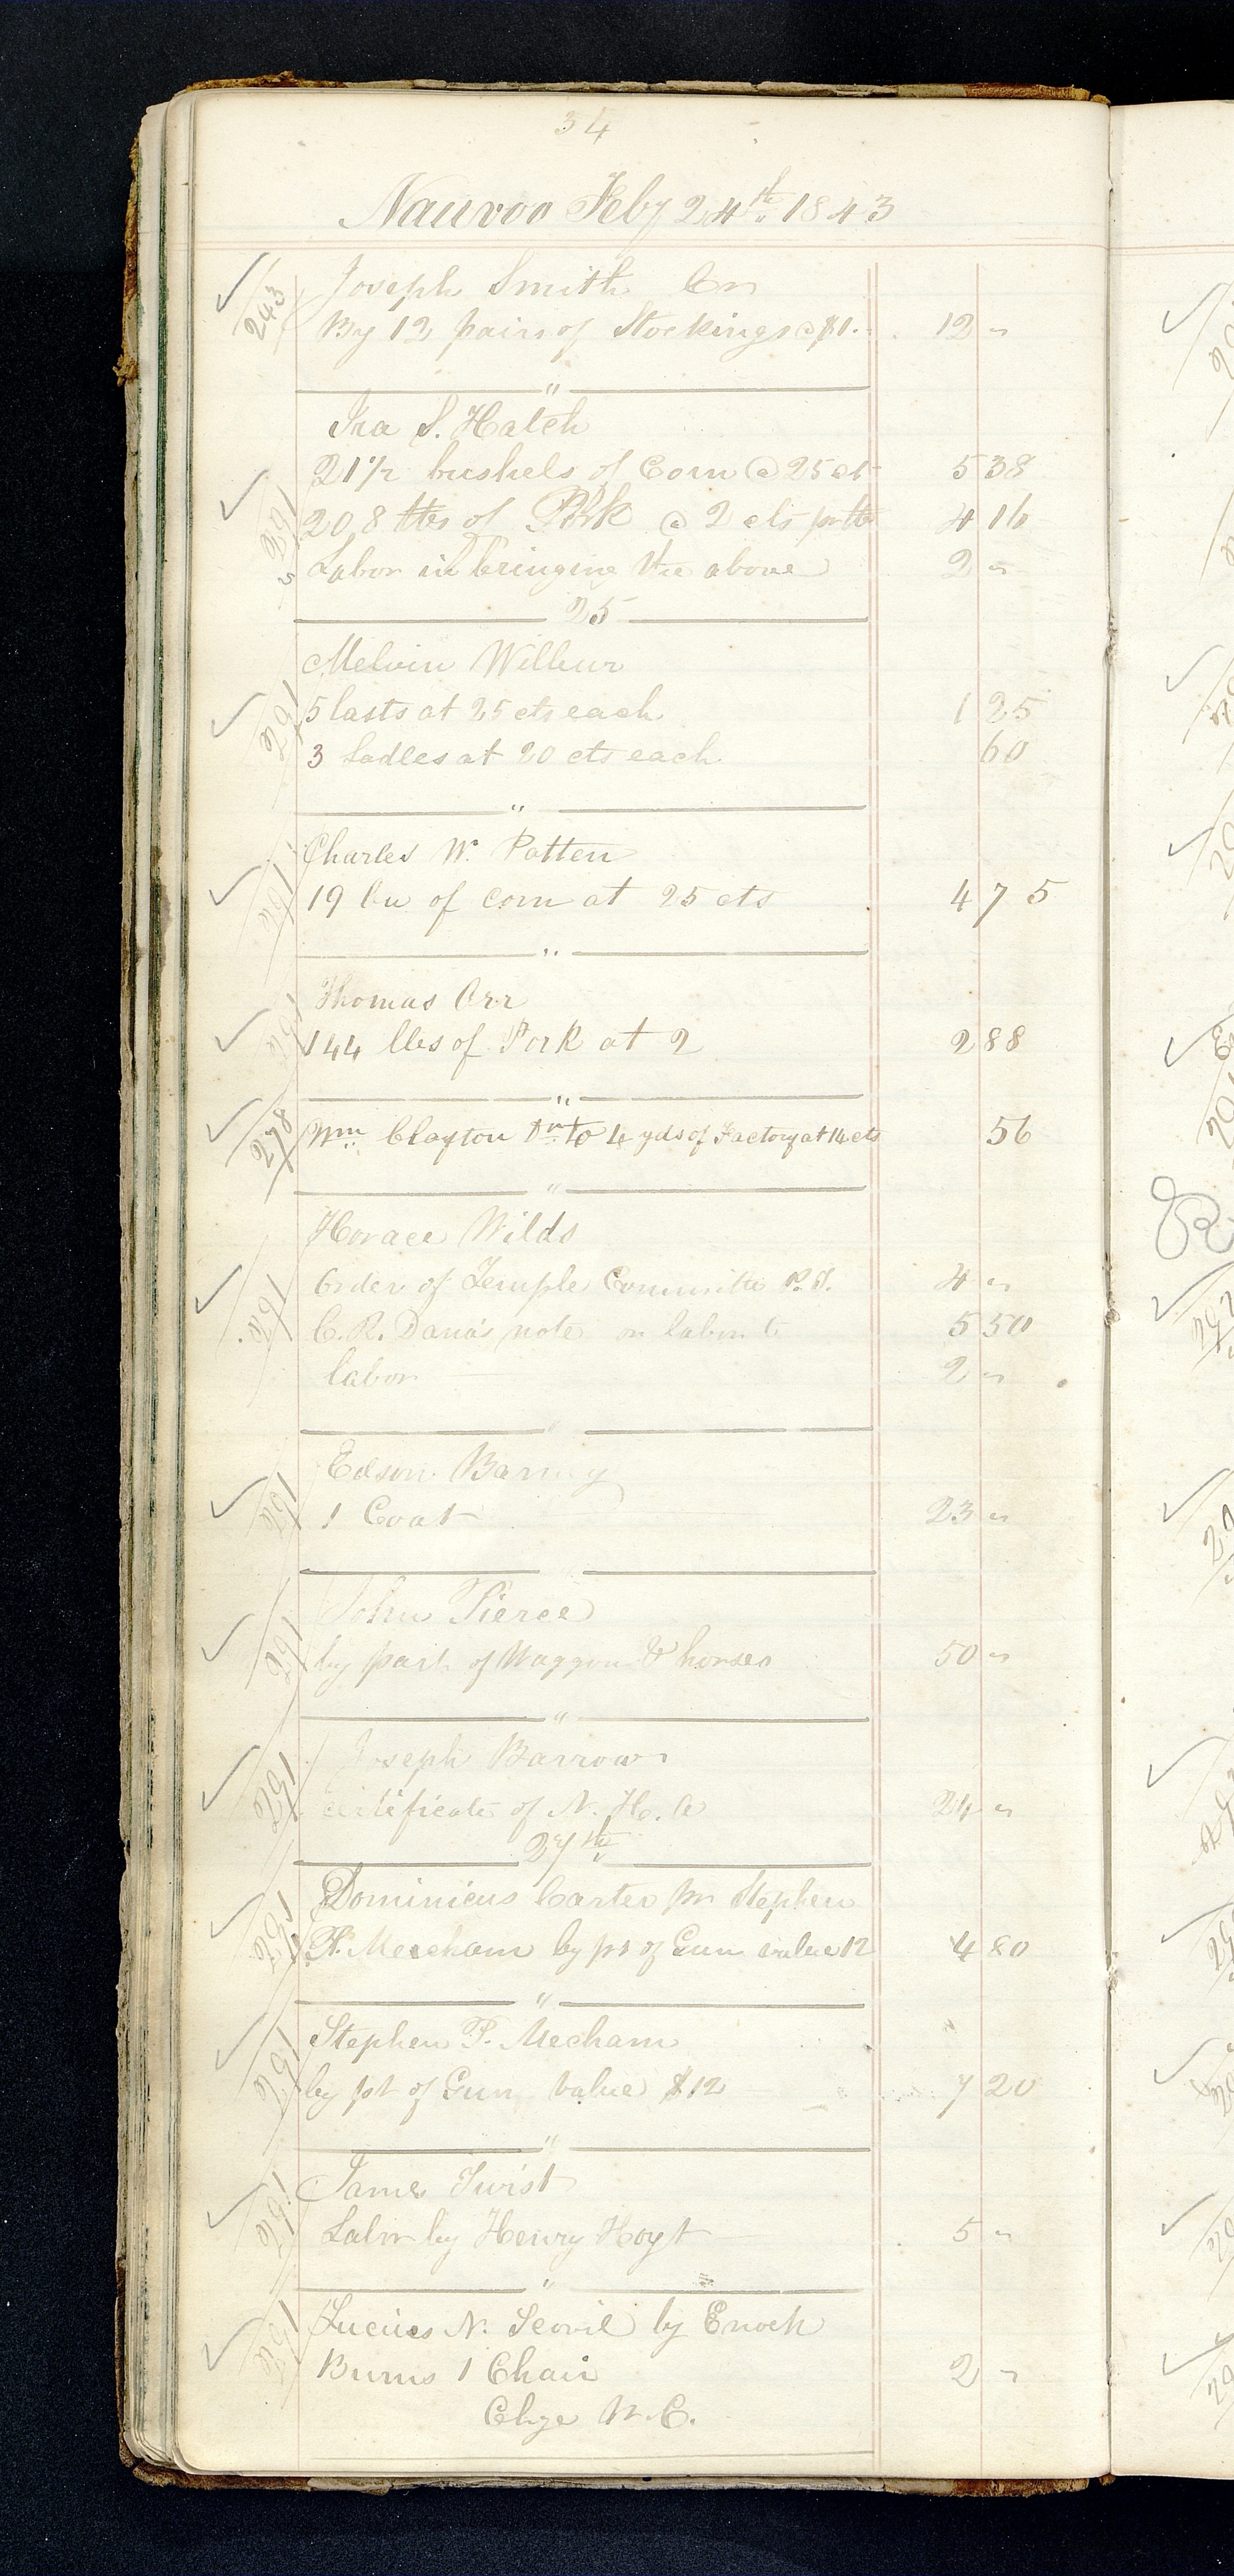 34
Nauvoo Feby 24th 1843
243 Joseph Smith Cr
By 12 pairs of Stockings @ $1.. 12 "
"
Ira S. Hatch
21 1/2 bushels of Corn @ 25 cts 5 38
291 208 lbs of Pork @ 2 cts pr lb 4 16
Labor in bringing the above 2 "
25
Melvin Wilbur
291 5 lasts at 25 cts each 1 25
3 Ladles at 20 cts each 60
"
Charles W. Patten
291 19 bu of corn at 25 cts 4 75
"
Thomas Orr
291 144 lbs of Pork at 2 2 88
"
278 Wm Clayton Dr to 4 yds of Factory at 14 cts 56
"
Horace Wilds
Order of Temple Committe P. T. 4 "
291 C. R. Dana's note on labor to 5 50
labor 2 "
"
Edson Barney
291 1 Coat 23 "
John Pierce
291 by part of Waggon & horses 50 "
"
Joseph Barrows
291 certificate of N. H. A 24 "
27th
Dominicus Carter pr Stephen
291 P. Mecham by pt of Gun value 12 4 80
"
Stephen P. Mecham
291 by pt of Gun value $12 7 20
"
James Twist
291 Labor by Henry Hoyt 5 "
"
291 Lucius N. Scovil by Enoch
Burns 1 Chair 2 "
Chge W. C.